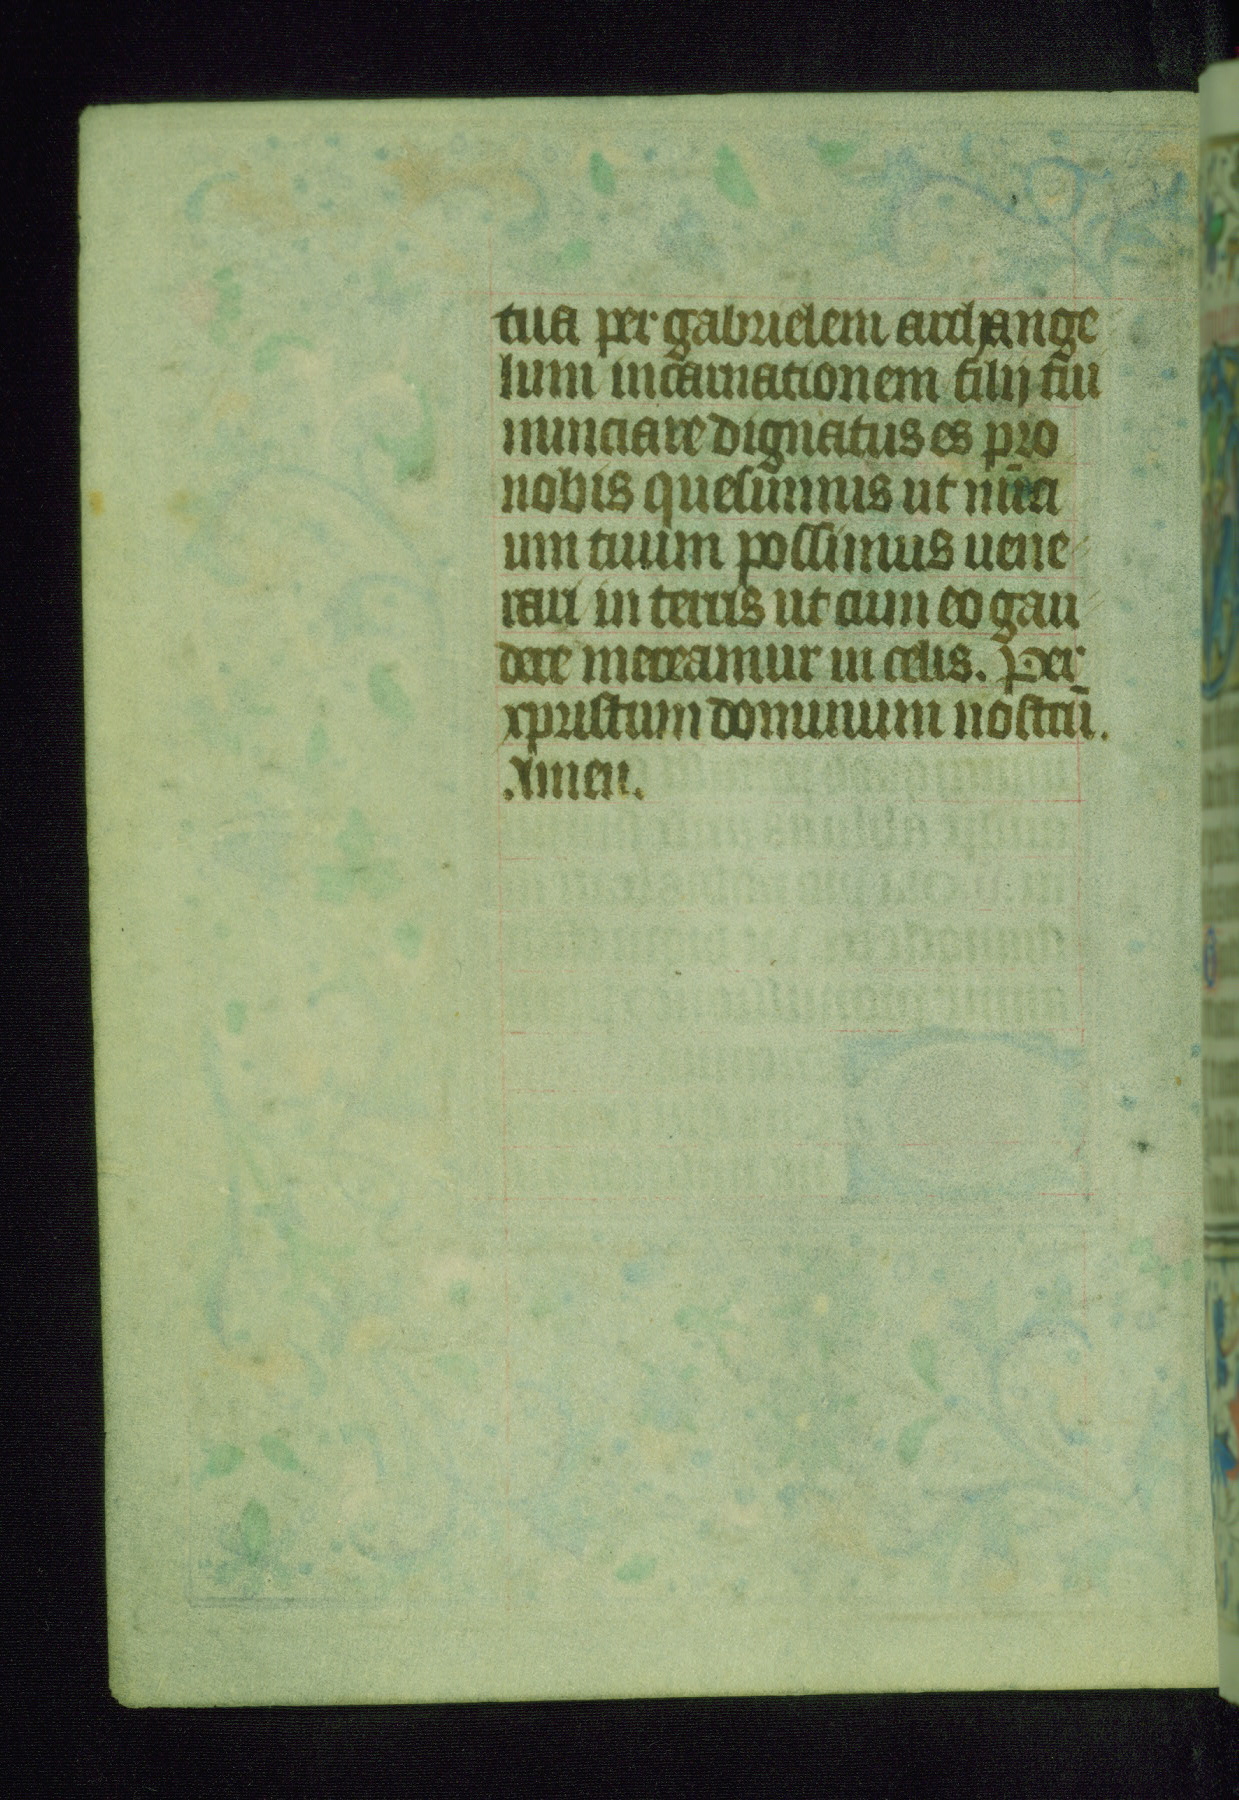 tua per gabrielem archange
lum incarnationem filij tui
nunciare dignatus es pro
nobis quesumus ut
um tuum possimus uene
rari in terris ut cum eo gau
dere mereamur in celis. Per
xpristum dominum nostrū.
Amen.